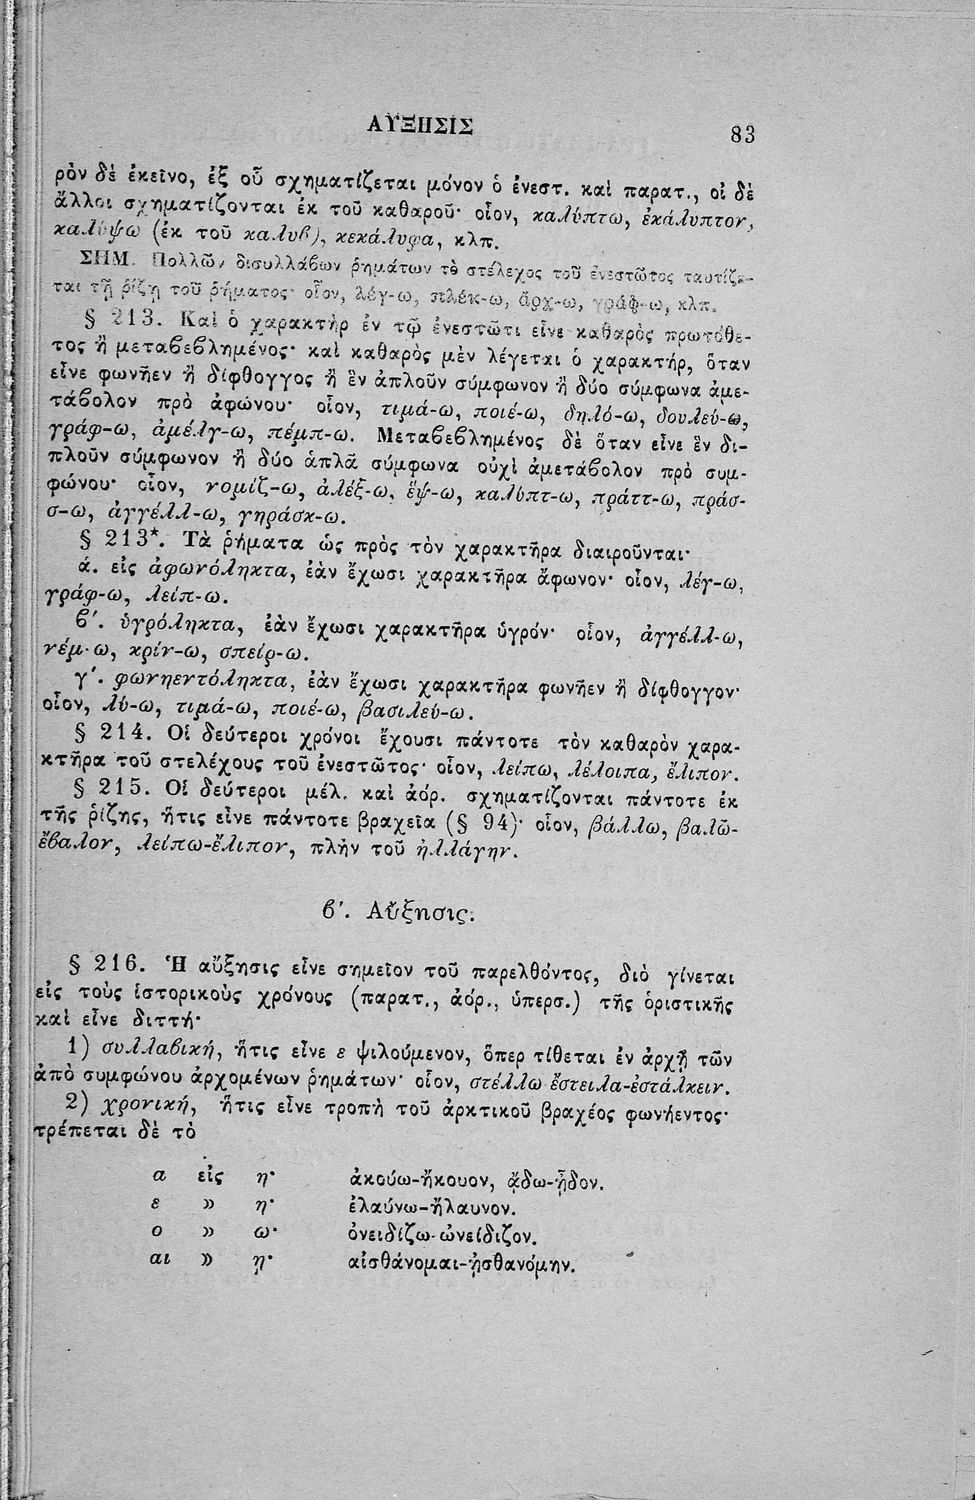 ΑΥΞΗΣΙΣ 83
ρὸν δὲ ἐκεῖνο, ἐξ οὗ σχηματίζεται μόνον ὁ ἐνεστ. καὶ παρατ., οἱ δὲ
ἄλλοι σχηματίζονται ἐκ τοῦ καθαροῦ· οἷον, καλύπτω, ἐκάλυπτον,
καλύψω (ἐκ τοῦ καλυβ), κεκάλυφα, κλπ.
ΣΗΜ. Πολλῶν δισυλλάβων ῥημάτων τὸ στέλεχος τοῦ ἐνεστῶτος ταυτίζε-
ται τῇ ῥίζῃ τοῦ ῥήματος· οἷον, λέγ-ω, πλέκ-ω, ἄρχ-ω, γράφ-ω, κλπ.
§ 213. Καὶ ὁ χαρακτὴρ ἐν τῷ ἐνεστῶτι εἶνε καθαρὸς πρωτόθε-
τος ἢ μεταβεβλημένος· καὶ καθαρὸς μὲν λέγεται ὁ χαρακτήρ, ὅταν
εἶνε φωνῆεν ἢ δίφθογγος ἢ ἓν ἁπλοῦν σύμφωνον ἢ δύο σύμφωνα ἀμε-
τάβολον πρὸ ἀφώνου· οἷον, τιμά-ω, ποιέ-ω, δηλό-ω, δουλεύ-ω,
γράφ-ω, ἀμέλγ-ω, πέμπ-ω. Μεταβεβλημένος δὲ ὅταν εἶνε ἓν δι-
πλοῦν σύμφωνον ἢ δύο ἁπλᾶ σύμφωνα οὐχὶ ἀμετάβολον πρὸ συμ-
φώνου· οἷον, νομίζ-ω, ἀλέξ-ω, ἕψ-ω, καλύπτ-ω, πράττ-ω, πράσ-
σ-ω, ἀγγέλλ-ω, γηράσκ-ω.
§ 213*. Τὰ ῥήματα ὡς πρὸς τὸν χαρακτῆρα διαιροῦνται·
ά. εἰς ἀφωνόληκτα, ἐὰν ἔχωσι χαρακτῆρα ἄφωνον· οἷον, λέγ-ω,
γράφ-ω, λείπ-ω.
β΄. ὑγρόληκτα, ἐὰν ἔχωσι χαρακτῆρα ὑγρόν· οἷον, ἀγγέλλ-ω,
νέμ-ω, κρίν-ω, σπείρ-ω.
γ΄. φωνηεντόληκτα, ἐὰν ἔχωσι χαρακτῆρα φωνῆεν ἢ δίφθογγον·
οἷον, λύ-ω, τιμά-ω, ποιέ-ω, βασιλεύ-ω.
§ 214. Οἱ δεύτεροι χρόνοι ἔχουσι πάντοτε τὸν καθαρὸν χαρα-
κτῆρα τοῦ στελέχους τοῦ ἐνεστῶτος· οἷον, λείπω, λέλοιπα, ἔλιπον.
§ 215. Οἱ δεύτεροι μέλ. καὶ ἀόρ. σχηματίζονται πάντοτε ἐκ
τῆς ῥίζης, ἥτις εἶνε πάντοτε βραχεῖα (§ 94)· οἷον, βάλλω, βαλῶ-
ἔβαλον, λείπω-ἔλιπον, πλὴν τοῦ ἠλλάγην.
β΄. Αὔξησις.
§ 216. Ἡ αὔξησις εἶνε σημεῖον τοῦ παρελθόντος, διὸ γίνεται
εἰς τοὺς ἱστορικοὺς χρόνους (παρατ., ἀόρ., ὑπερσ.) τῆς ὁριστικῆς
καὶ εἶνε διττή·
1) συλλαβική, ἥτις εἶνε ε ψιλούμενον, ὅπερ τίθεται ἐν ἀρχῇ τῶν
ἀπὸ συμφώνου ἀρχομένων ῥημάτων· οἷον, στέλλω ἔστειλα-ἐστάλκειν.
2) χρονική, ἥτις εἶνε τροπὴ τοῦ ἀρκτικοῦ βραχέος φωνήεντος·
τρέπεται δὲ τὸ
α εἰς η· ἀκούω-ἤκουον, ᾄδω-ᾖδον.
ε » η· ἐλαύνω-ἤλαυνον.
ο » ω· ὀνειδίζω-ὠνείδιζον.
αι » ῃ· αἰσθάνομαι-ᾐσθανόμην.